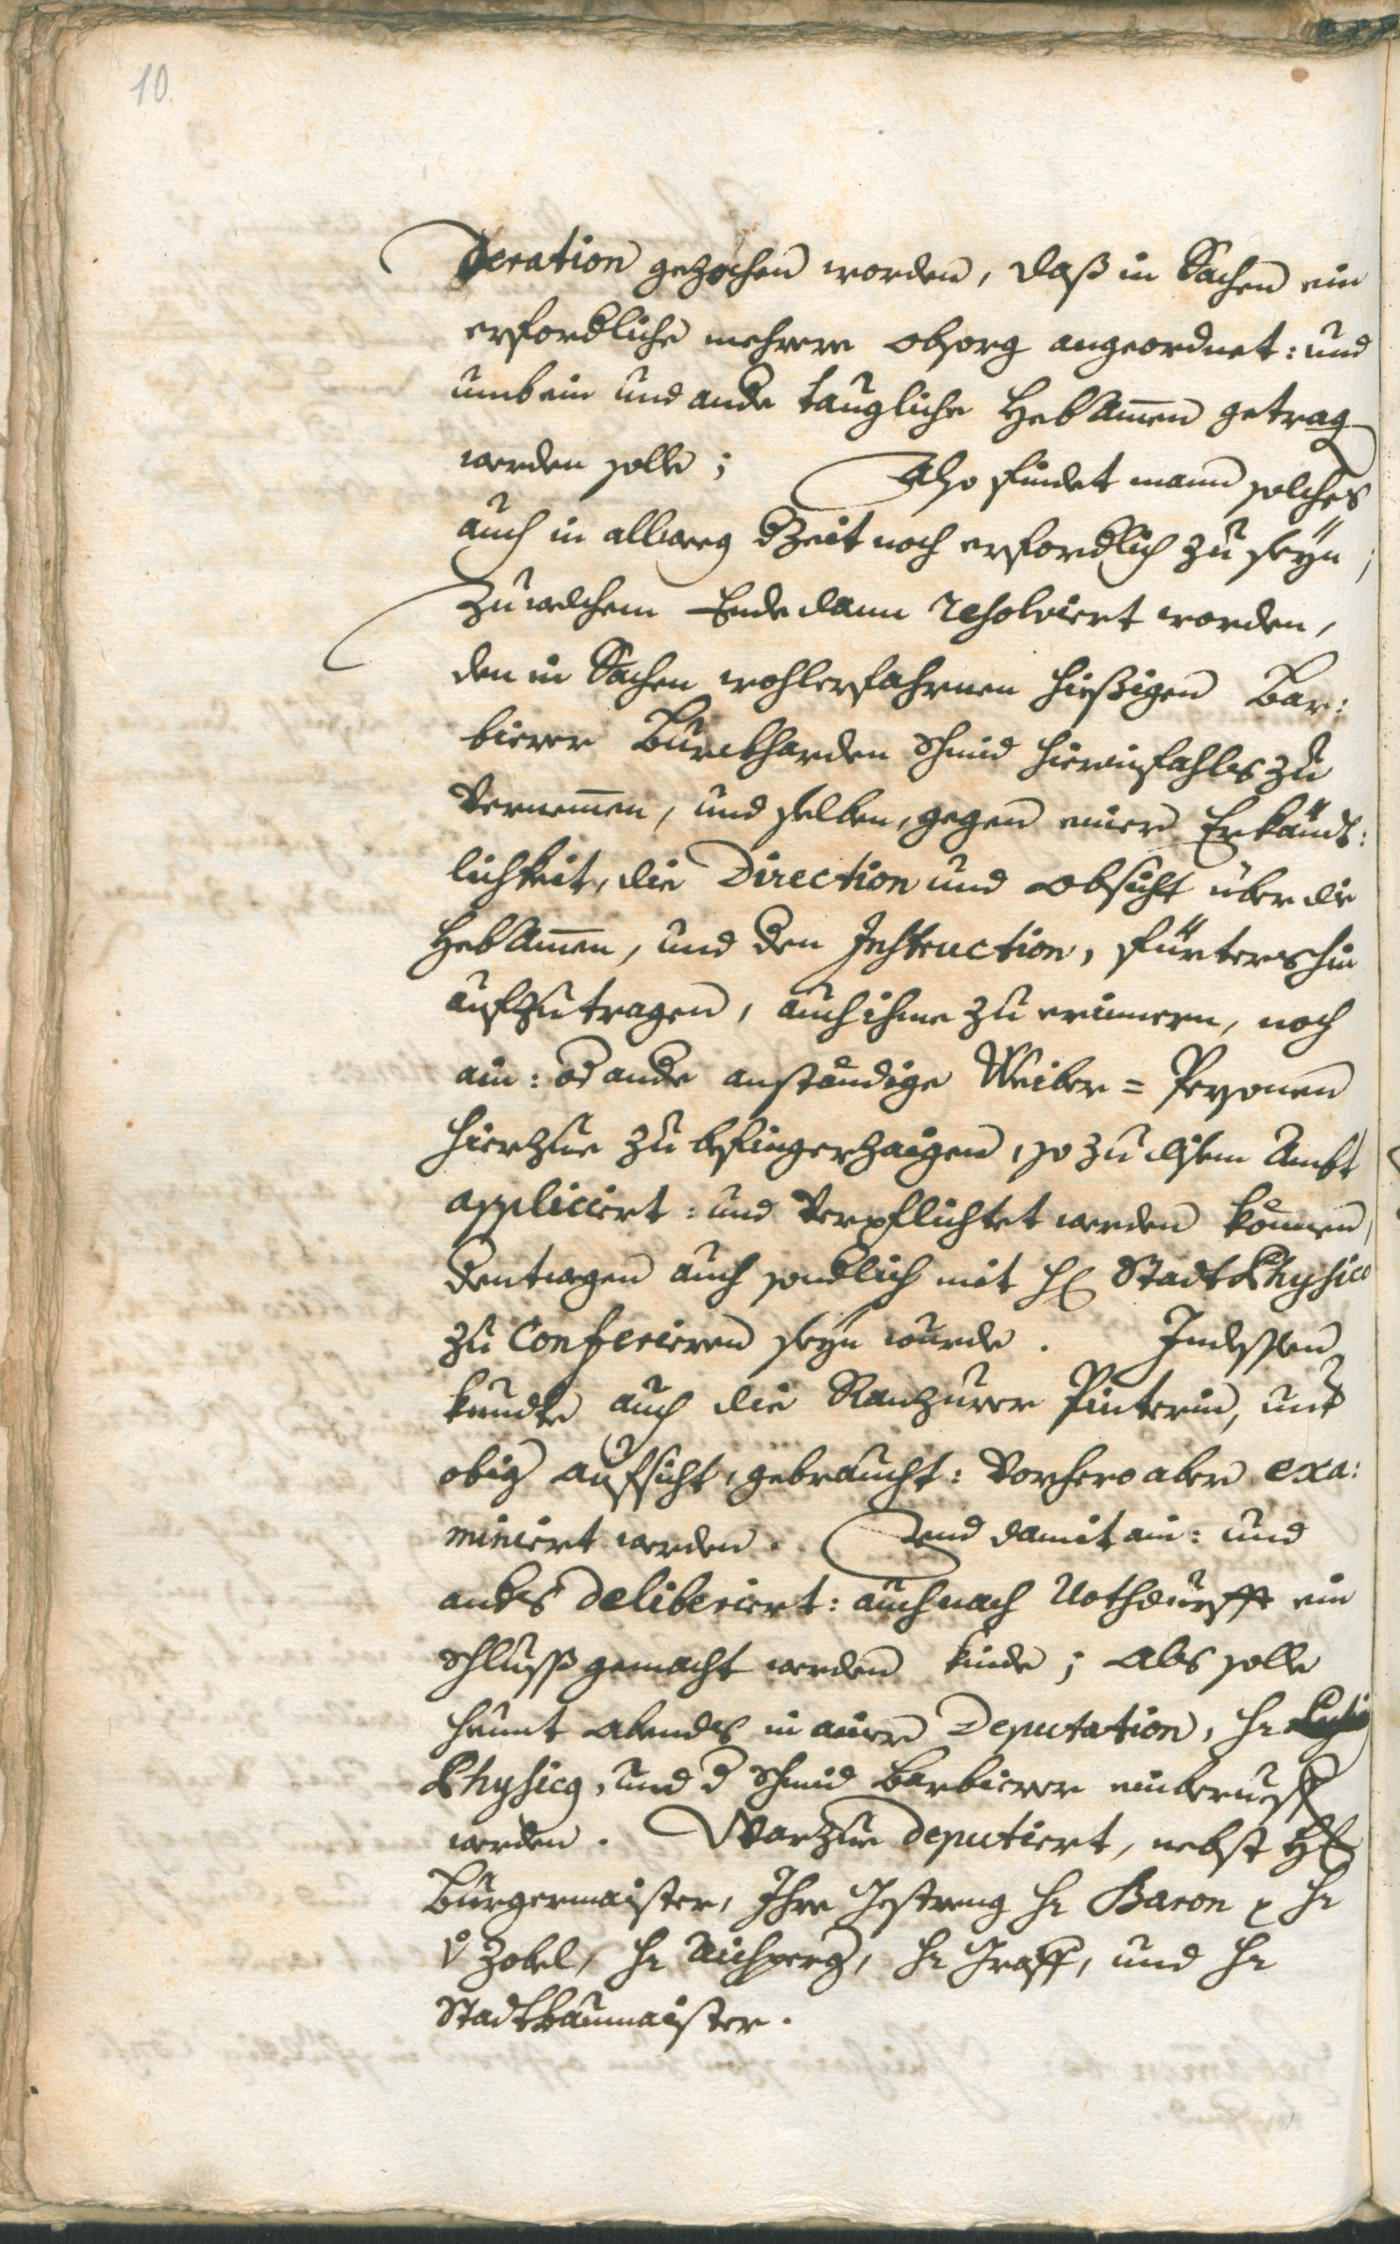 10.
deration gezochen worden, daß in Sachen ein
erfordliche mehrere obsorg angeordnet: und
umb ein und ande taugliche HebAmen getrag
werden solle; Also findet mann solches
auch in allweg dZeit noch erfordlich zu seyn,
Zu welchem Ende dann resolviert worden,
den in Sachen wohlerfahrnen hießigen Bar:
bierer Burckharden Schmid hierinfahls zu
Vernemen, und selben, gegen einer Erkandt:
lichkeit, die Direction und obsicht über die
HebAmen, und den Instruction, fürtershin
aufzutragen, auch ihme zu erinnern, noch
ain: od ande anständige Weiber = Persohnen
hierzue zu befingerzaigen, so zu disem Ambt
appliciert: und Verpflichtet werden können,
dentwegen auch sondlich mit H Stadt Physico
zu Conferieren seyn wurde. Indessen
kundte auch die Ranzurer Pinterin, unt
obig aufsicht, gebraucht: Vorhero aber exa:
miniert werden. Und damit ain: und
ants deliberiert: auch nach Nothdurfft ein
Schluß gemacht werden kinde; Als solle
heunt abends in ainer Deputation, Hr
Physicus, und d Schmid Barbierer einberuefft
werden. Warzue deputiert, nebst H
Burgermaister, Ihre Gestreng Hr Baron Hr
v Zobel, Hr Aichperg, Hr Graff, und Hr
Stadtbaumaister.